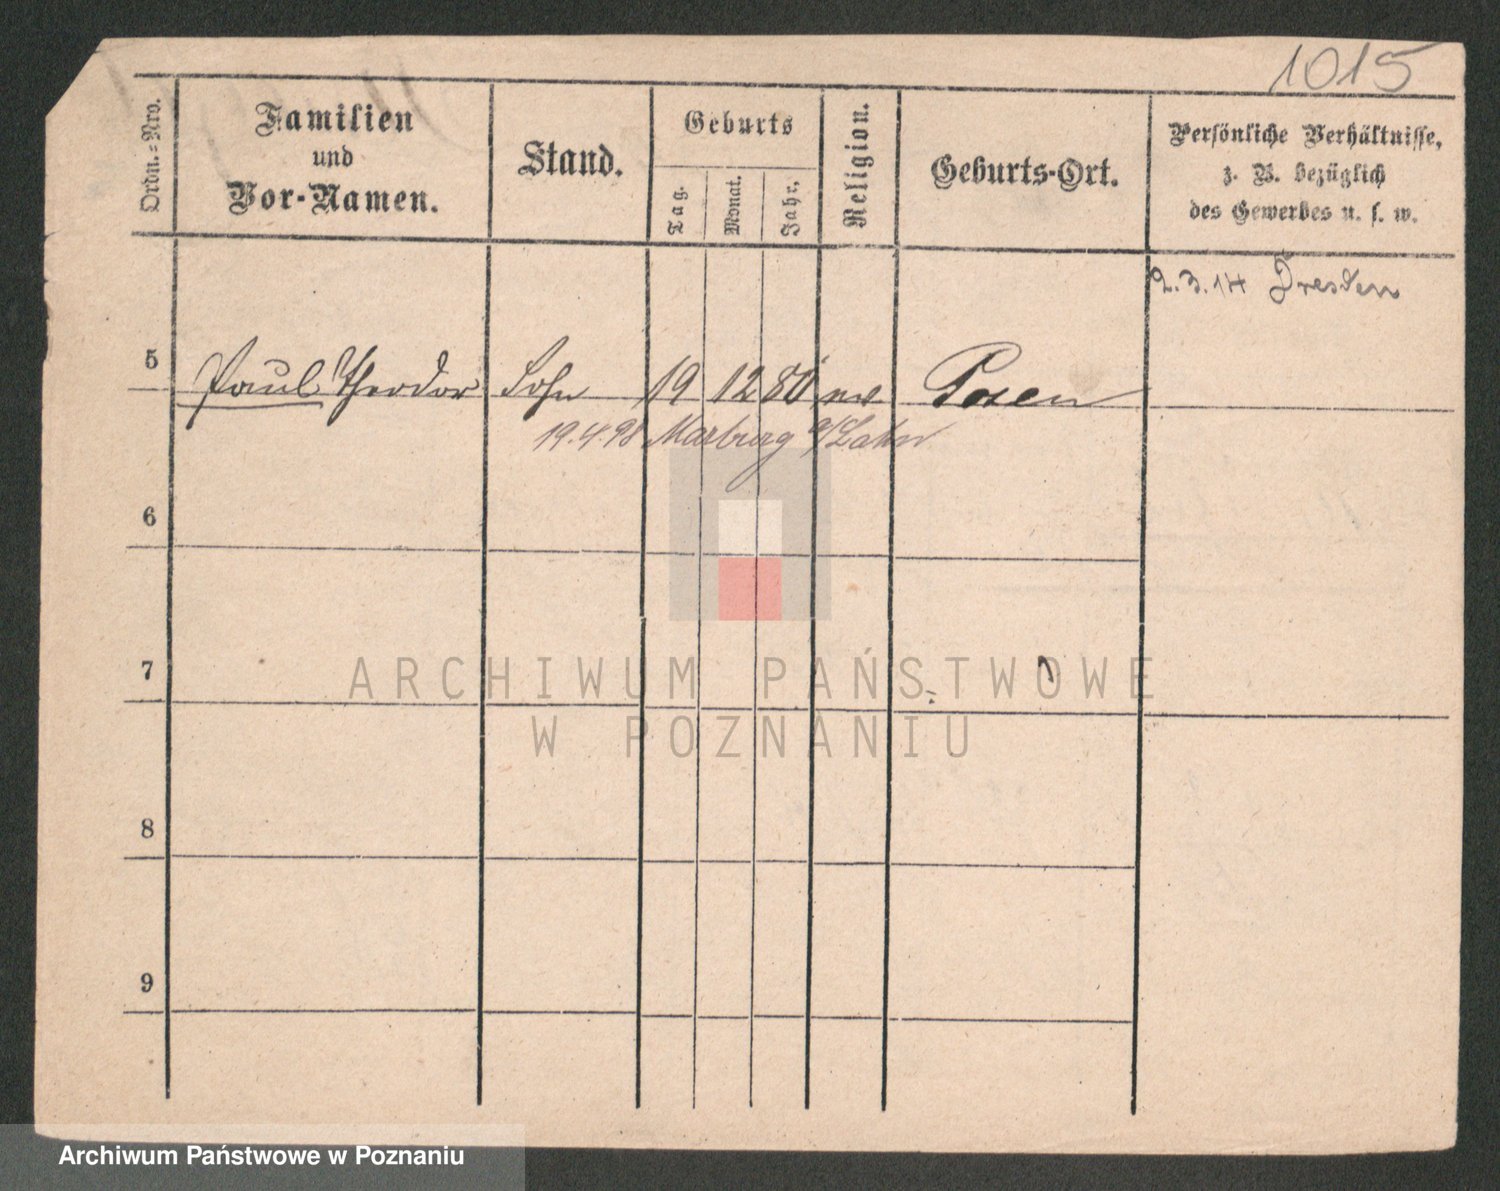 1015
Ordn.-Nro.
Familien
und
Vor-Namen.
Stand.
Geburts
Tag.
Monat.
Jahr.
Religion.
Geburts-Ort.
Persönliche Verhältnisse,
z. B. bezüglich
des Gewerbes u. s. w.
2.3.14 Dresden
5 Paul Theodor Sohn 19 12 80 ev Posen
19.4.98 Marburg a/Lahn
6
7
8
9
ARCHIWUM PAŃSTWOWE
W POZNANIU
Archiwum Państwowe w Poznaniu